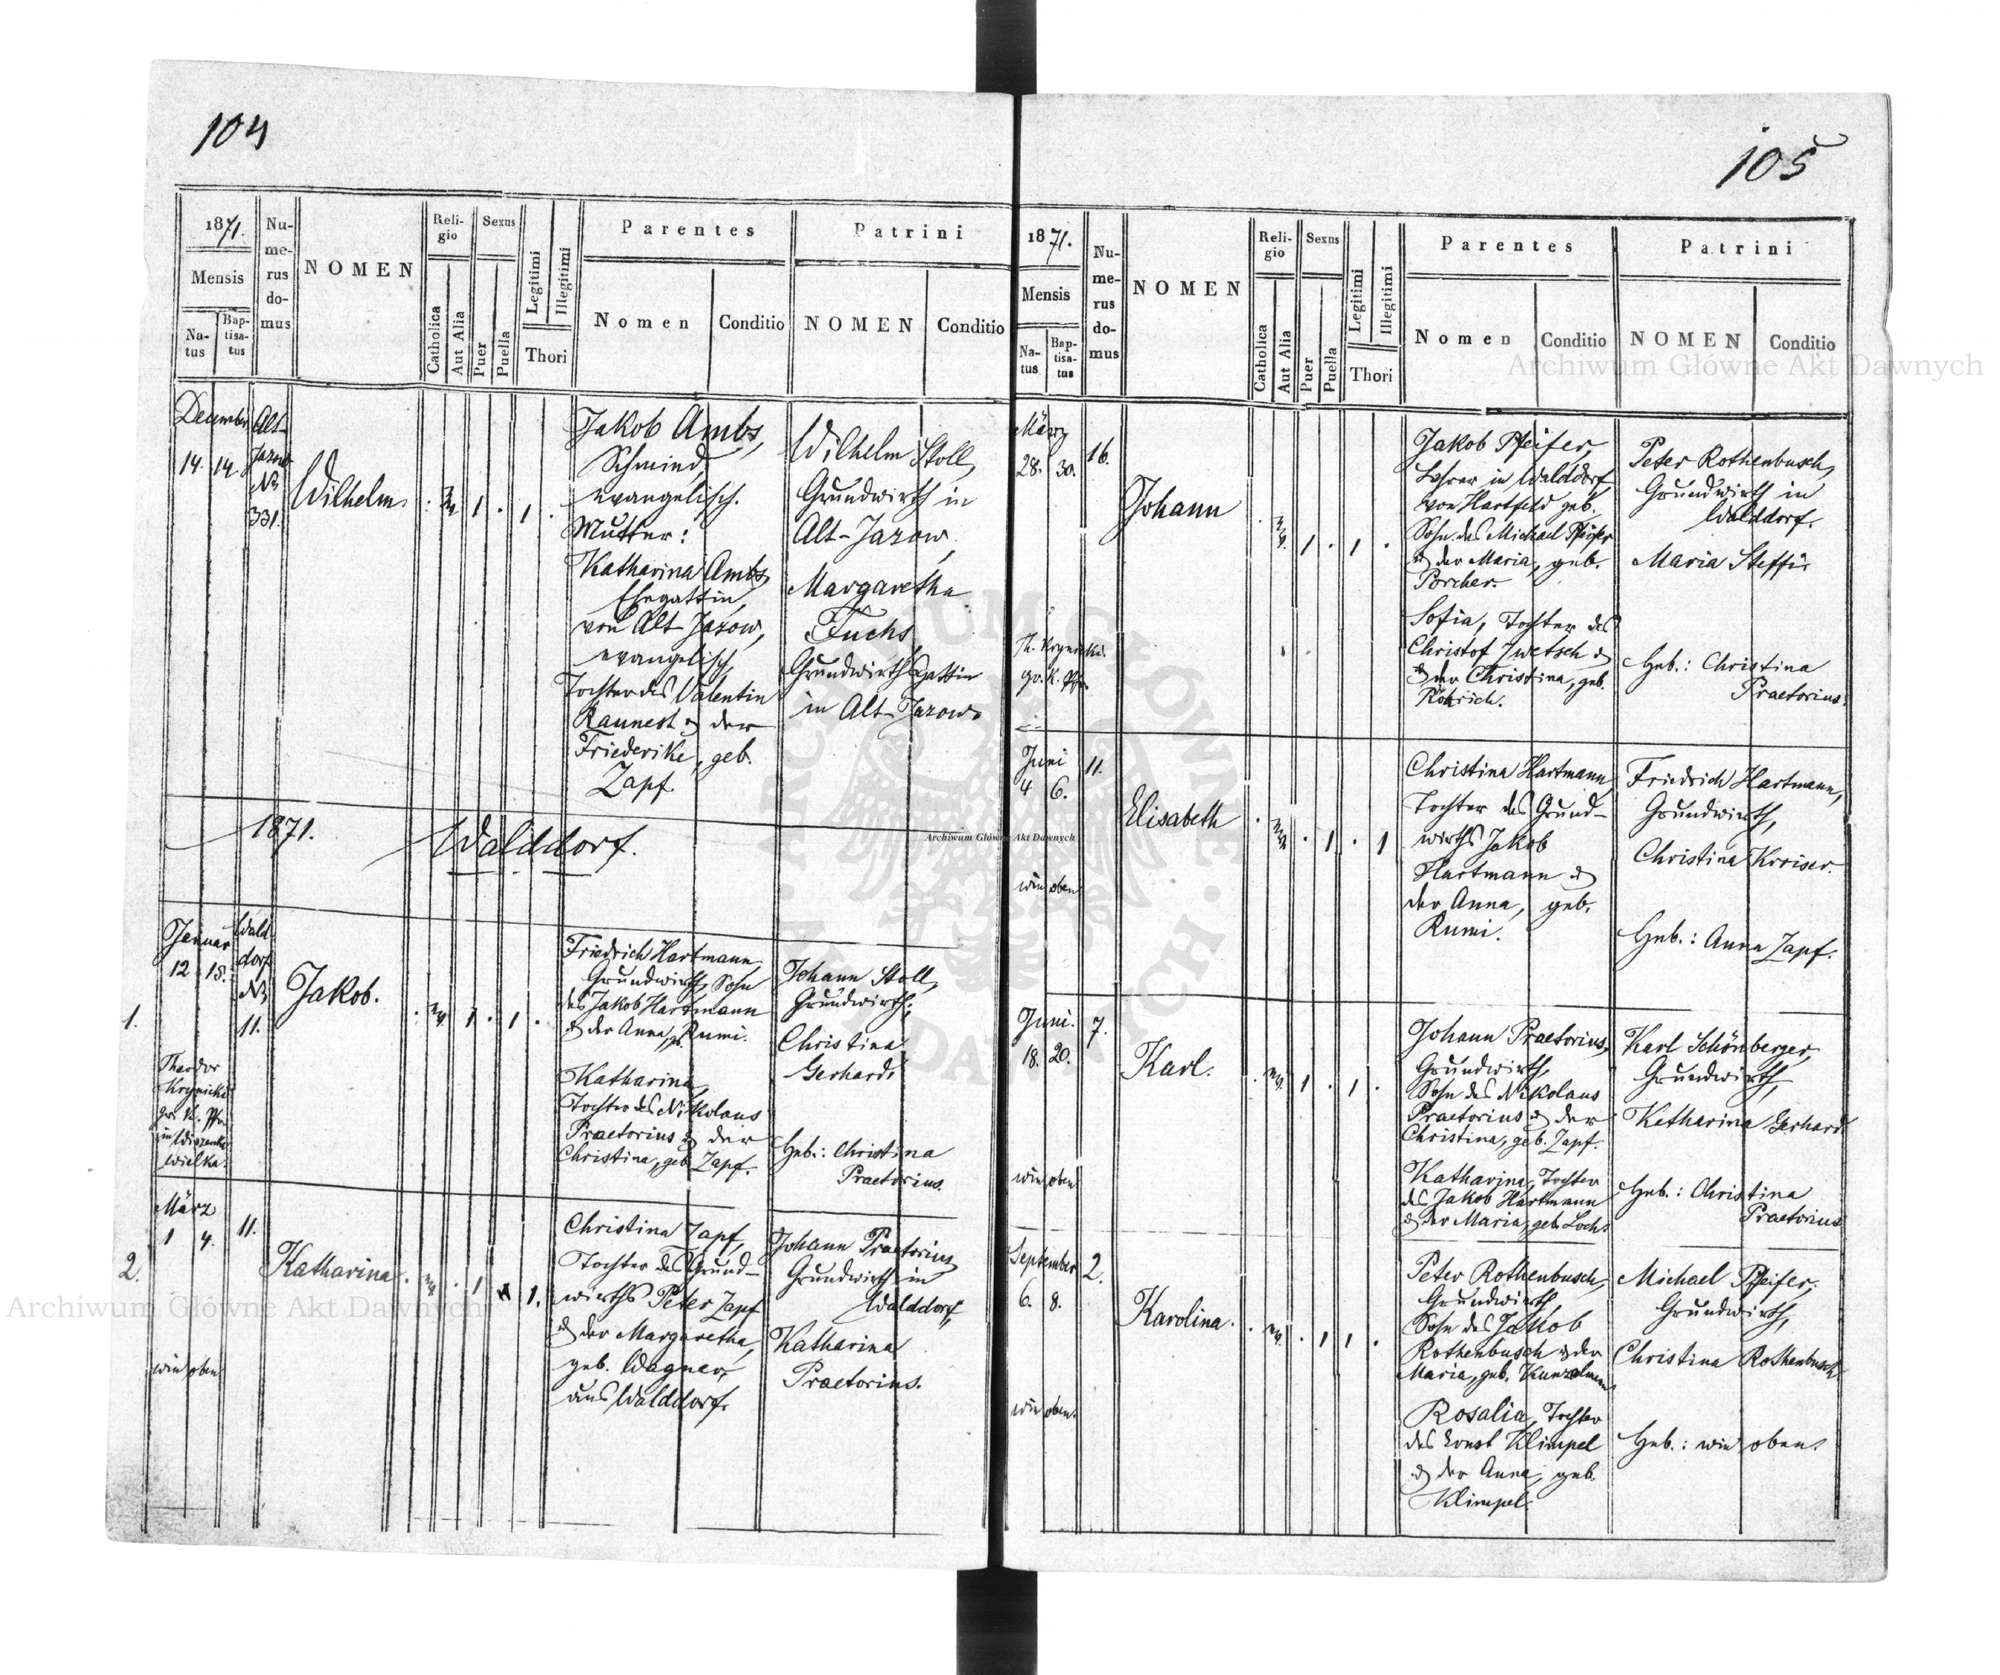 104
1871.
Mensis
Na-
tus
Bap-
tisa-
tus
Nu-
me-
rus
do-
mus
NOMEN
Reli-
gio
Catholica
Aut Alia
Sexus
Puer
Puella
Legitimi
Illegitimi
Thori
Parentes
Nomen
Conditio
Patrini
NOMEN
Conditio
December
14. 14.
Alt-
Jazow
No
331.
Wilhelm
ev
1
1
Jakob Ambs,
Schmied,
evangelisch.
Mutter:
Katharina Ambs
Ehegattin,
von Alt Jazow,
evangelisch,
Tochter des Valentin
Raunest & der
Friederike, geb.
Zapf
Wilhelm Stoll,
Grundwirth in
Alt-Jazow,
Margaretha
Fuchs
Grundwirths Gattin
in Alt-Jazow.
1871.
Walddorf.
1.
Januar
12 15.
Wald-
dorf
No
11.
Theodor
Krynicki
gr. k. Pfr.
in Wiszenka
wielka.
Jakob.
ev.
1
1
Friedrich Hartmann
Grundwirth, Sohn
des Jakob Hartmann
& der Anna, g. Rumi.
Katharina,
Tochter des Nikolaus
Praetorius & der
Christina, geb. Zapf.
Johann Stoll,
Grundwirth;
Christina
Gerhard,
Heb.: Christina
Praetorius.
2.
März
1 4.
11.
wie oben
Katharina.
ev.
1
1.
Christina Zapf,
Tochter des Grund-
wirths Peter Zapf
& der Margaretha,
geb. Wagner,
aus Walddorf.
Johann Praetorius,
Grundwirth in
Walddorf,
Katharina
Praetorius.
105
1871.
Mensis
Na-
tus
Bap-
tisa-
tus
Nu-
me-
rus
do-
mus
NOMEN
Reli-
gio
Catholica
Aut Alia
Sexus
Puer
Puella
Legitimi
Illegitimi
Thori
Parentes
Nomen
Conditio
Patrini
NOMEN
Conditio
März
28. 30.
16.
Th. Krynicki.
gr. k. Pfr.
Johann
ev.
1
1
Jakob Pfeifer,
Lehrer in Walddorf,
von Hartfeld geb.
Sohn des Michael Pfeifer
& der Maria, geb.
Porcher.
Sofia, Tochter des
Christof Zwetsch &
& der Christina, geb.
Röhrich.
Peter Rothenbusch,
Grundwirth in
Walddorf.
Maria Steffi
Heb.: Christina
Praetorius.
Juni
4 6.
11.
wie oben
Elisabeth
ev
1
1
Christina Hartmann,
Tochter des Grund-
wirths Jakob
Hartmann &
der Anna, geb.
Rumi.
Friedrich Hartmann,
Grundwirth,
Christina Kreiser.
Heb.: Anna Zapf.
Juni.
18. 20.
7.
wie oben
Karl.
ev.
1
1
Johann Praetorius,
Grundwirth,
Sohn des Nikolaus
Praetorius & der
Christina, geb. Zapf.
Katharina, Tochter
des Jakob Hartmann
& der Maria, geb. Loch.
Karl Schönberger,
Grundwirth,
Katharina Gerhard.
Heb.: Christina
Praetorius
September
6. 8.
2.
wie oben.
Karolina.
ev.
1
1
Peter Rothenbusch,
Grundwirth,
Sohn des Jakob
Rothenbusch & der
Maria, geb. Kunzelmann
Rosalia, Tochter
des Ernst Klimpel
& der Anna, geb.
Klimpel.
Michael Pfeifer,
Grundwirth,
Christina Rothenbusch.
Heb.: wie oben.
Archiwum Główne Akt Dawnych
Archiwum Główne Akt Dawnych
Archiwum Główne Akt Dawnych
ARCHIWUM GŁÓWNE AKT DAWNYCH